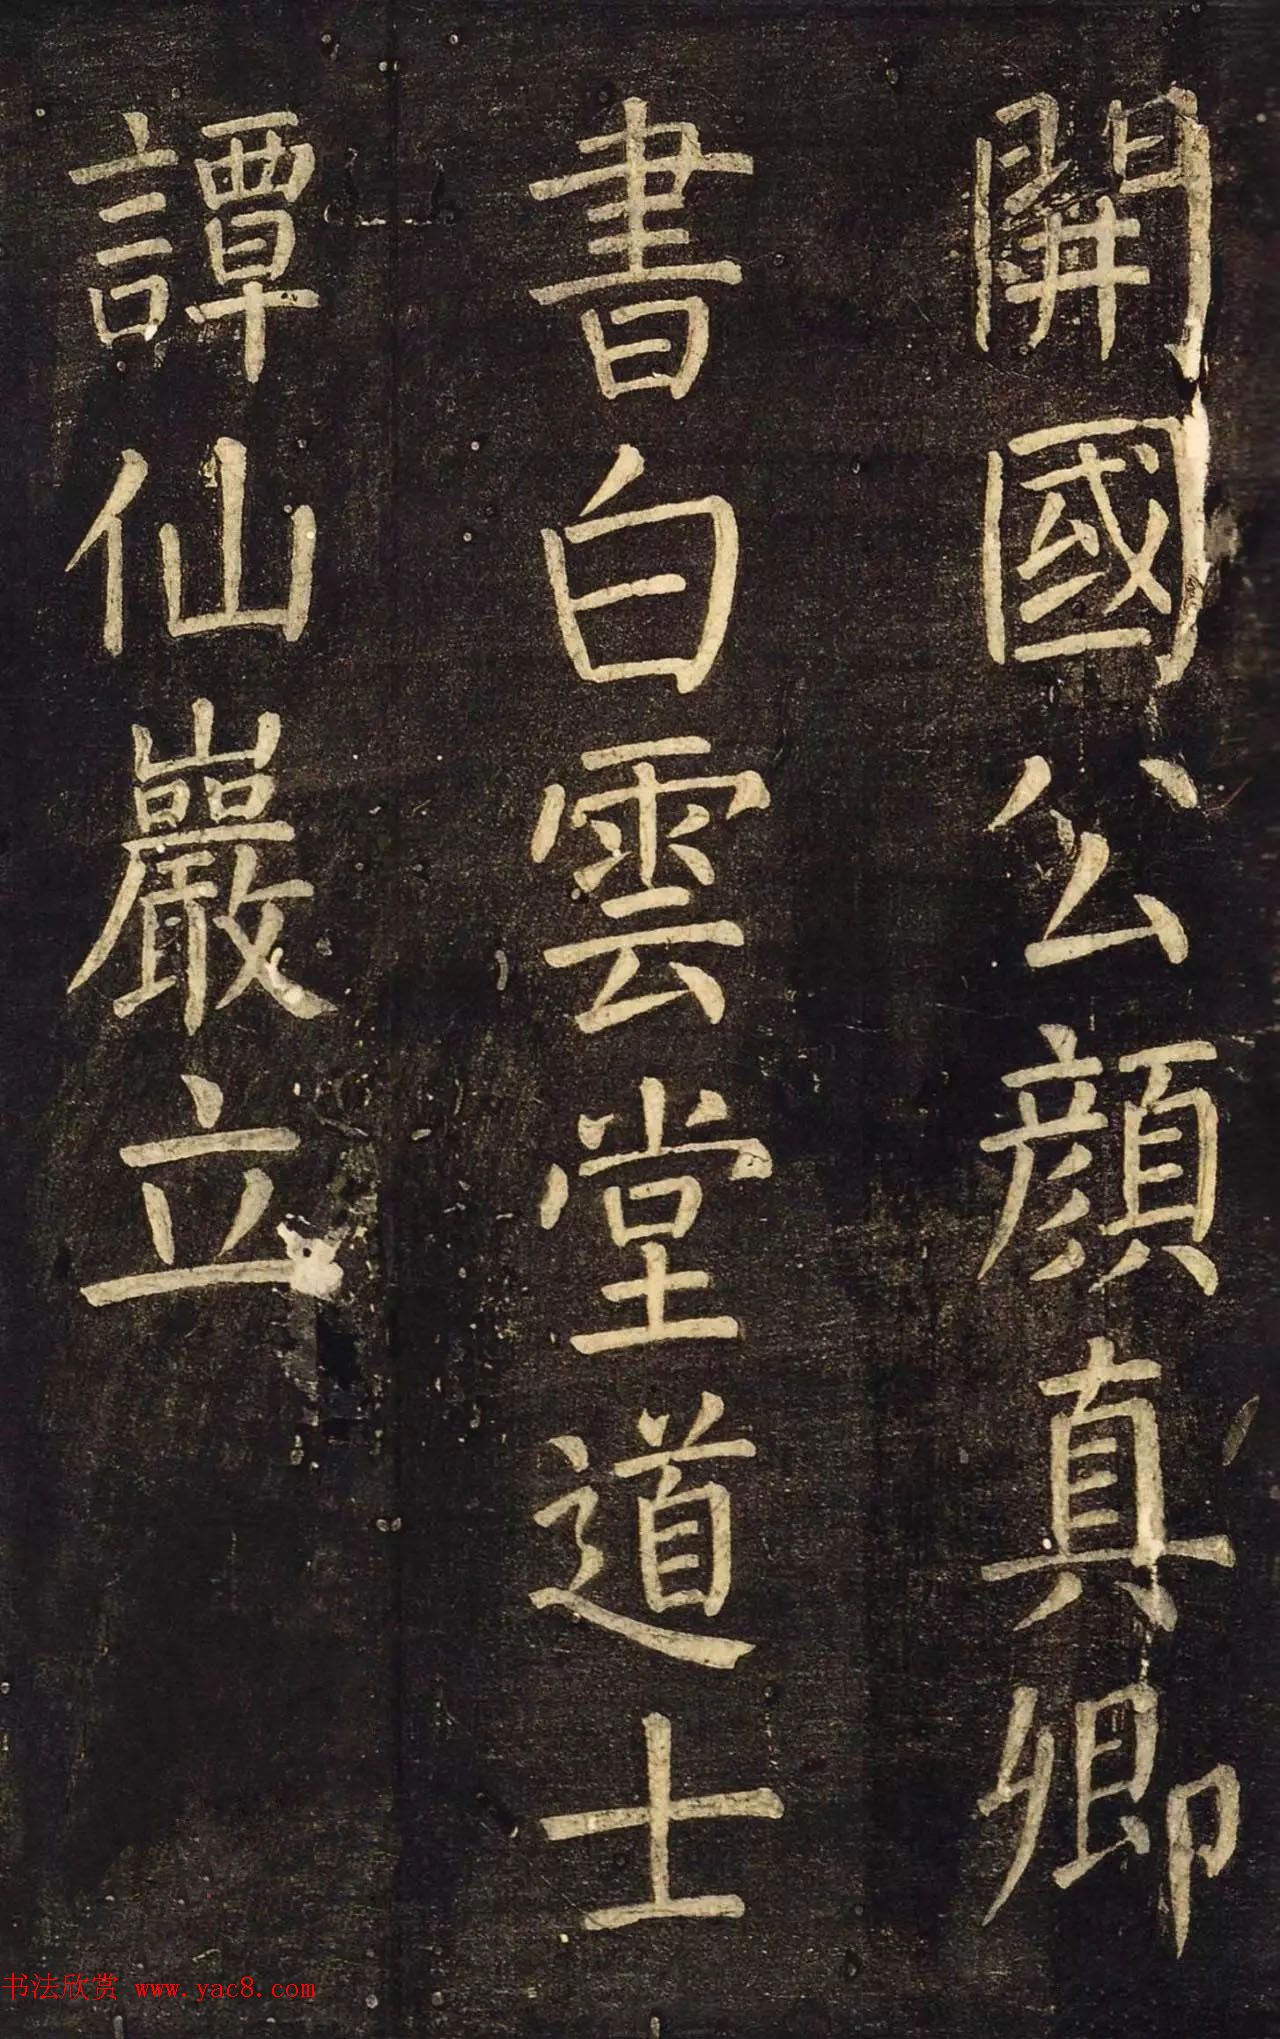 開國公顏真卿
書白雲堂道士
譚仙巖立
书法欣赏 www.yac8.com